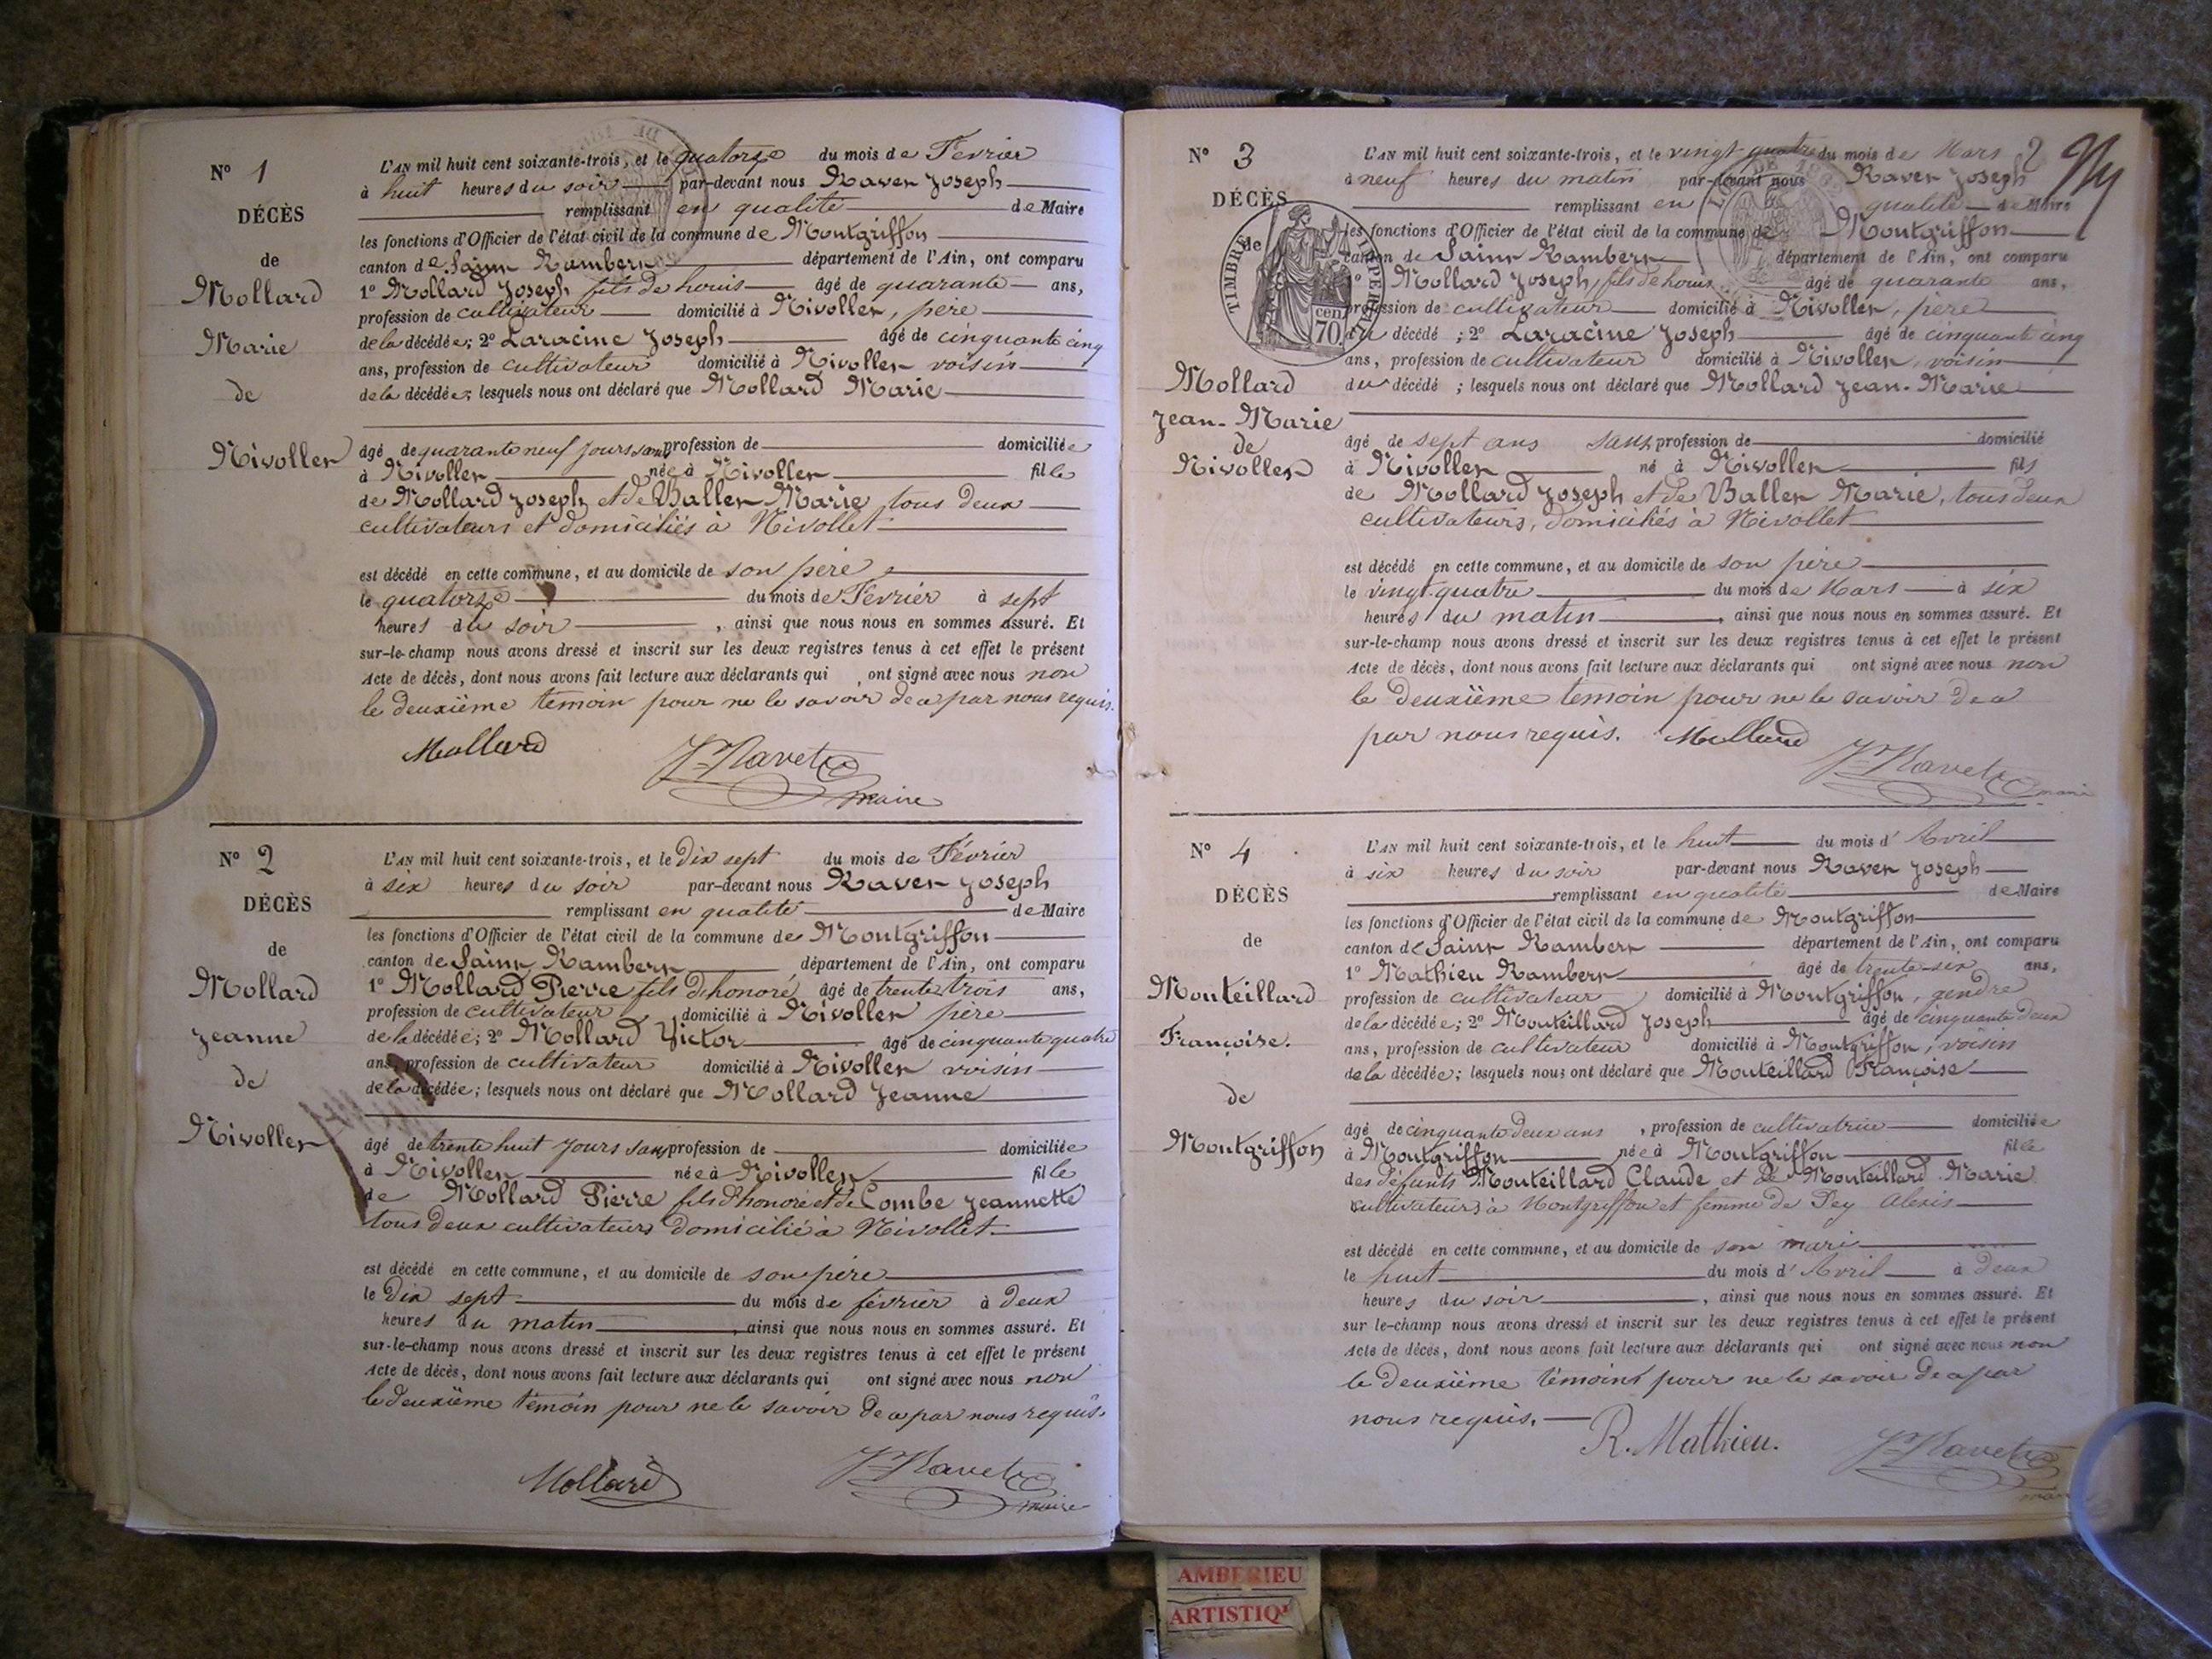 N° 1
DÉCÈS
de
Mollard
Marie
de
Nivollet
L'AN mil huit cent soixante-trois, et le quatorze du mois de Février
à huit heures du soir par-devant nous Ravet Joseph
remplissant en qualité de Maire
les fonctions d'Officier de l'état civil de la commune de Montgriffon
canton de Saint Rambert département de l'Ain, ont comparu
1° Mollard Joseph fils de Louis âgé de quarante ans,
profession de cultivateur domicilié à Nivollet, père
de la décédée; 2° Laracine Joseph âgé de cinquante cinq
ans, profession de cultivateur domicilié à Nivollet voisin
de la décédée; lesquels nous ont déclaré que Mollard Marie
âgé de quarante neuf jours sans profession de domiciliée
à Nivollet née à Nivollet fille
de Mollard Joseph et de Ballet Marie tous deux
cultivateurs et domiciliés à Nivollet
est décédé en cette commune, et au domicile de son père
le quatorze du mois de Février à sept
heures du soir, ainsi que nous nous en sommes assuré. Et
sur-le-champ nous avons dressé et inscrit sur les deux registres tenus à cet effet le présent
Acte de décès, dont nous avons fait lecture aux déclarants qui ont signé avec nous non
le deuxième témoin pour ne le savoir de ce par nous requis.
Mollard J. Ravet
maire
N° 2
DÉCÈS
de
Mollard
Jeanne
de
Nivollet
L'AN mil huit cent soixante-trois, et le Dix sept du mois de Février
à six heures du soir par-devant nous Ravet Joseph
remplissant en qualité de Maire
les fonctions d'Officier de l'état civil de la commune de Montgriffon
canton de Saint Rambert département de l'Ain, ont comparu
1° Mollard Pierre fils d'honoré âgé de trente trois ans,
profession de cultivateur domicilié à Nivollet père
de la décédée; 2° Mollard Victor âgé de cinquante quatre
ans, profession de cultivateur domicilié à Nivollet voisin
de la décédée; lesquels nous ont déclaré que Mollard Jeanne
âgé de trente huit jours sans profession de domiciliée
à Nivollet née à Nivollet fille
de Mollard Pierre fils d'honoré et de Combe Jeannette
tous deux cultivateurs domicilié à Nivollet
est décédé en cette commune, et au domicile de son père
le Dix sept du mois de février à deux
heures du matin, ainsi que nous nous en sommes assuré. Et
sur-le-champ nous avons dressé et inscrit sur les deux registres tenus à cet effet le présent
Acte de décès, dont nous avons fait lecture aux déclarants qui ont signé avec nous non
le deuxième témoin pour ne le savoir de ce par nous requis.
Mollard J. Ravet
maire
N° 3
DÉCÈS
de
TIMBRE IMPERIAL
70 cen
Mollard
Jean-Marie
de
Nivollet
L'AN mil huit cent soixante-trois, et le vingt quatre du mois de Mars 2
à neuf heures du matin par-devant nous Ravet Joseph
remplissant en qualité de Maire
les fonctions d'Officier de l'état civil de la commune de Montgriffon
canton de Saint Rambert département de l'Ain, ont comparu
1° Mollard Joseph, fils de Louis âgé de quarante ans,
profession de cultivateur domicilié à Nivollet, père
du décédé; 2° Laracine Joseph âgé de cinquante cinq
ans, profession de cultivateur domicilié à Nivollet, voisin
du décédé; lesquels nous ont déclaré que Mollard Jean-Marie
âgé de sept ans sans profession de domicilié
à Nivollet né à Nivollet fils
de Mollard Joseph et de Ballet Marie, tous deux
cultivateurs, domiciliés à Nivollet
est décédé en cette commune, et au domicile de son père
le vingt-quatre du mois de Mars à six
heures du matin, ainsi que nous nous en sommes assuré. Et
sur-le-champ nous avons dressé et inscrit sur les deux registres tenus à cet effet le présent
Acte de décès, dont nous avons fait lecture aux déclarants qui ont signé avec nous non
le deuxième témoin pour ne le savoir de ce
par nous requis. Mollard
J. Ravet
maire
N° 4
DÉCÈS
de
Monteillard
Françoise.
de
Montgriffon
L'AN mil huit cent soixante-trois, et le huit du mois d'Avril
à six heures du soir par-devant nous Ravet Joseph
remplissant en qualité de Maire
les fonctions d'Officier de l'état civil de la commune de Montgriffon
canton de Saint Rambert département de l'Ain, ont comparu
1° Mathieu Rambert âgé de trente-six ans,
profession de cultivateur domicilié à Montgriffon, gendre
de la décédée; 2° Monteillard Joseph âgé de cinquante deux
ans, profession de cultivateur domicilié à Montgriffon, voisin
de la décédée; lesquels nous ont déclaré que Monteillard Françoise
âgé de cinquante deux ans, profession de cultivatrice domiciliée
à Montgriffon née à Montgriffon fille
des défunts Monteillard Claude et de Monteillard Marie
cultivateurs à Montgriffon et femme de Pey Alexis
est décédé en cette commune, et au domicile de son mari
le huit du mois d'Avril à deux
heures du soir, ainsi que nous nous en sommes assuré. Et
sur le-champ nous avons dressé et inscrit sur les deux registres tenus à cet effet le présent
Acte de décès, dont nous avons fait lecture aux déclarants qui ont signé avec nous non
le deuxième témoins pour ne le savoir de ce par
nous requis.
R. Mathieu. J. Ravet
AMBERIEU
ARTISTIQ